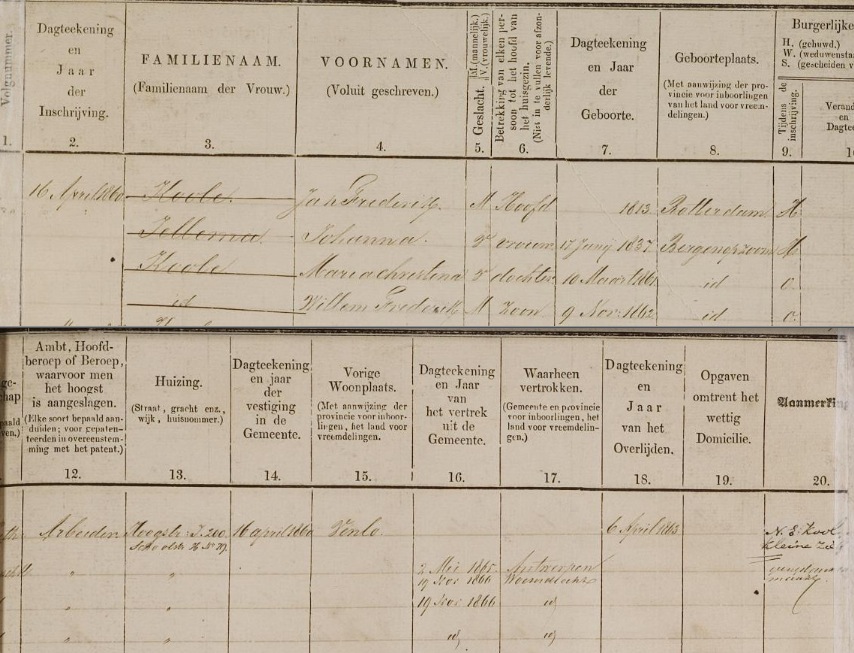 Volgnummer.
1.
Dagteekening
en
Jaar
der
Inschrijving.
2.
FAMILIENAAM.
(Familienaam der Vrouw.)
3.
VOORNAMEN.
(Voluit geschreven.)
4.
Geslacht.
M. (mannelijk.)
V. (vrouwelijk.)
5.
Betrekking van elken per-
soon tot het hoofd van
het huisgezin.
(Niet in te vullen voor afzon-
derlijk levende.)
6.
Dagteekening
en Jaar
der
Geboorte.
7.
Geboorteplaats.
(Met aanwijzing der pro-
vincie voor inboorlingen
van het land voor vreem-
delingen.)
8.
Burgerlijke
H. (gehuwd.)
W. (weduwensta
S. (gescheiden v
Tijdens de
inschrijving.
9.
Verand
en
Dagte
16 April 1860 Koole Jan Frederik M Hoofd 1813 Rotterdam H
Jellema Johanna. V vrouw 1837 Bergenopzoom H
Koole Maria V dochter 10 Maart 1861 id O
id Willem Frederik M Zoon 9 Nov. 1862 id O
Ambt, Hoofd-
beroep of Beroep,
waarvoor men
het hoogst
is aangeslagen.
(Elke soort bepaald aan-
duiden; voor gepaten-
teerden in overeenstem-
ming met het patent.)
12.
Huizing.
(Straat, gracht enz.,
wijk, huisnommer.)
13.
Dagteekening
en jaar
der
vestiging
in de
Gemeente.
14.
Vorige
Woonplaats.
(Met aanwijzing der
provincie voor inboor-
lingen, het land voor
vreemdelingen.)
15.
Dagteekening
en Jaar
van
het vertrek
uit de
Gemeente.
16.
Waarheen
vertrokken.
(Gemeente en provincie
voor inboorlingen, het
land voor vreemdelin-
gen.)
17.
Dagteekening
en
Jaar
van het
Overlijden.
18.
Opgaven
omtrent het
wettig
Domicilie.
19.
Aanmerking
20.
Arbeider Hoogstr. J. 200. 16 april 1860 Venlo 6 April 1863
kleine
" " 2 Mei 1865 Antwerpen
19 Nov 1866
" " 19 Nov 1866 id
" " id id